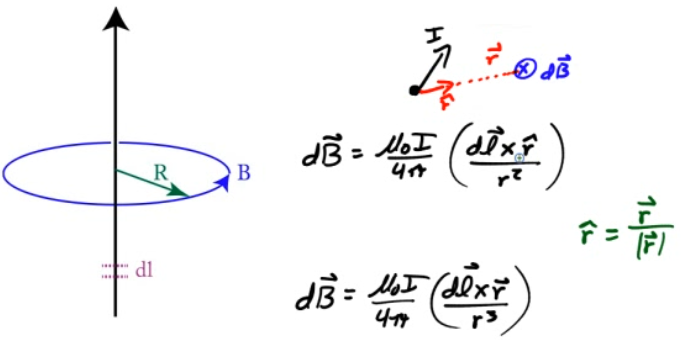 I
r⃗
dB⃗
r̂
R
B
dB⃗ = μ₀I/4π (dl⃗ × r̂/r²)
r̂ = r⃗/|r⃗|
dl
dB⃗ = μ₀I/4π (dl⃗ × r⃗/r³)